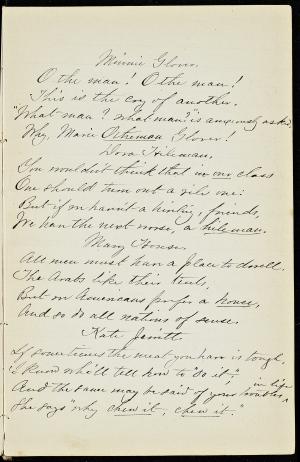 Minnie Glover.
O the man! O the man!
This is the cry of another.
"What man? What man?" is anxiously asked.
Why, Marie Otheman Glover!
Dora Hileman.
You wouldn't think that in our class
One should turn out a vile one:
But if we haven't a hinting, friends,
We have the next worse, a hileman.
Mary House.
All men must have a place to dwell.
The Arabs like their tents,
But we Americans prefer a house,
And so do all nations of sense.
Kate Jewett.
If sometimes the meat you have is tough,
I know who'll tell how to "do it,"
And the same may be said of your troubles in life
She says "why chew it, chew it."